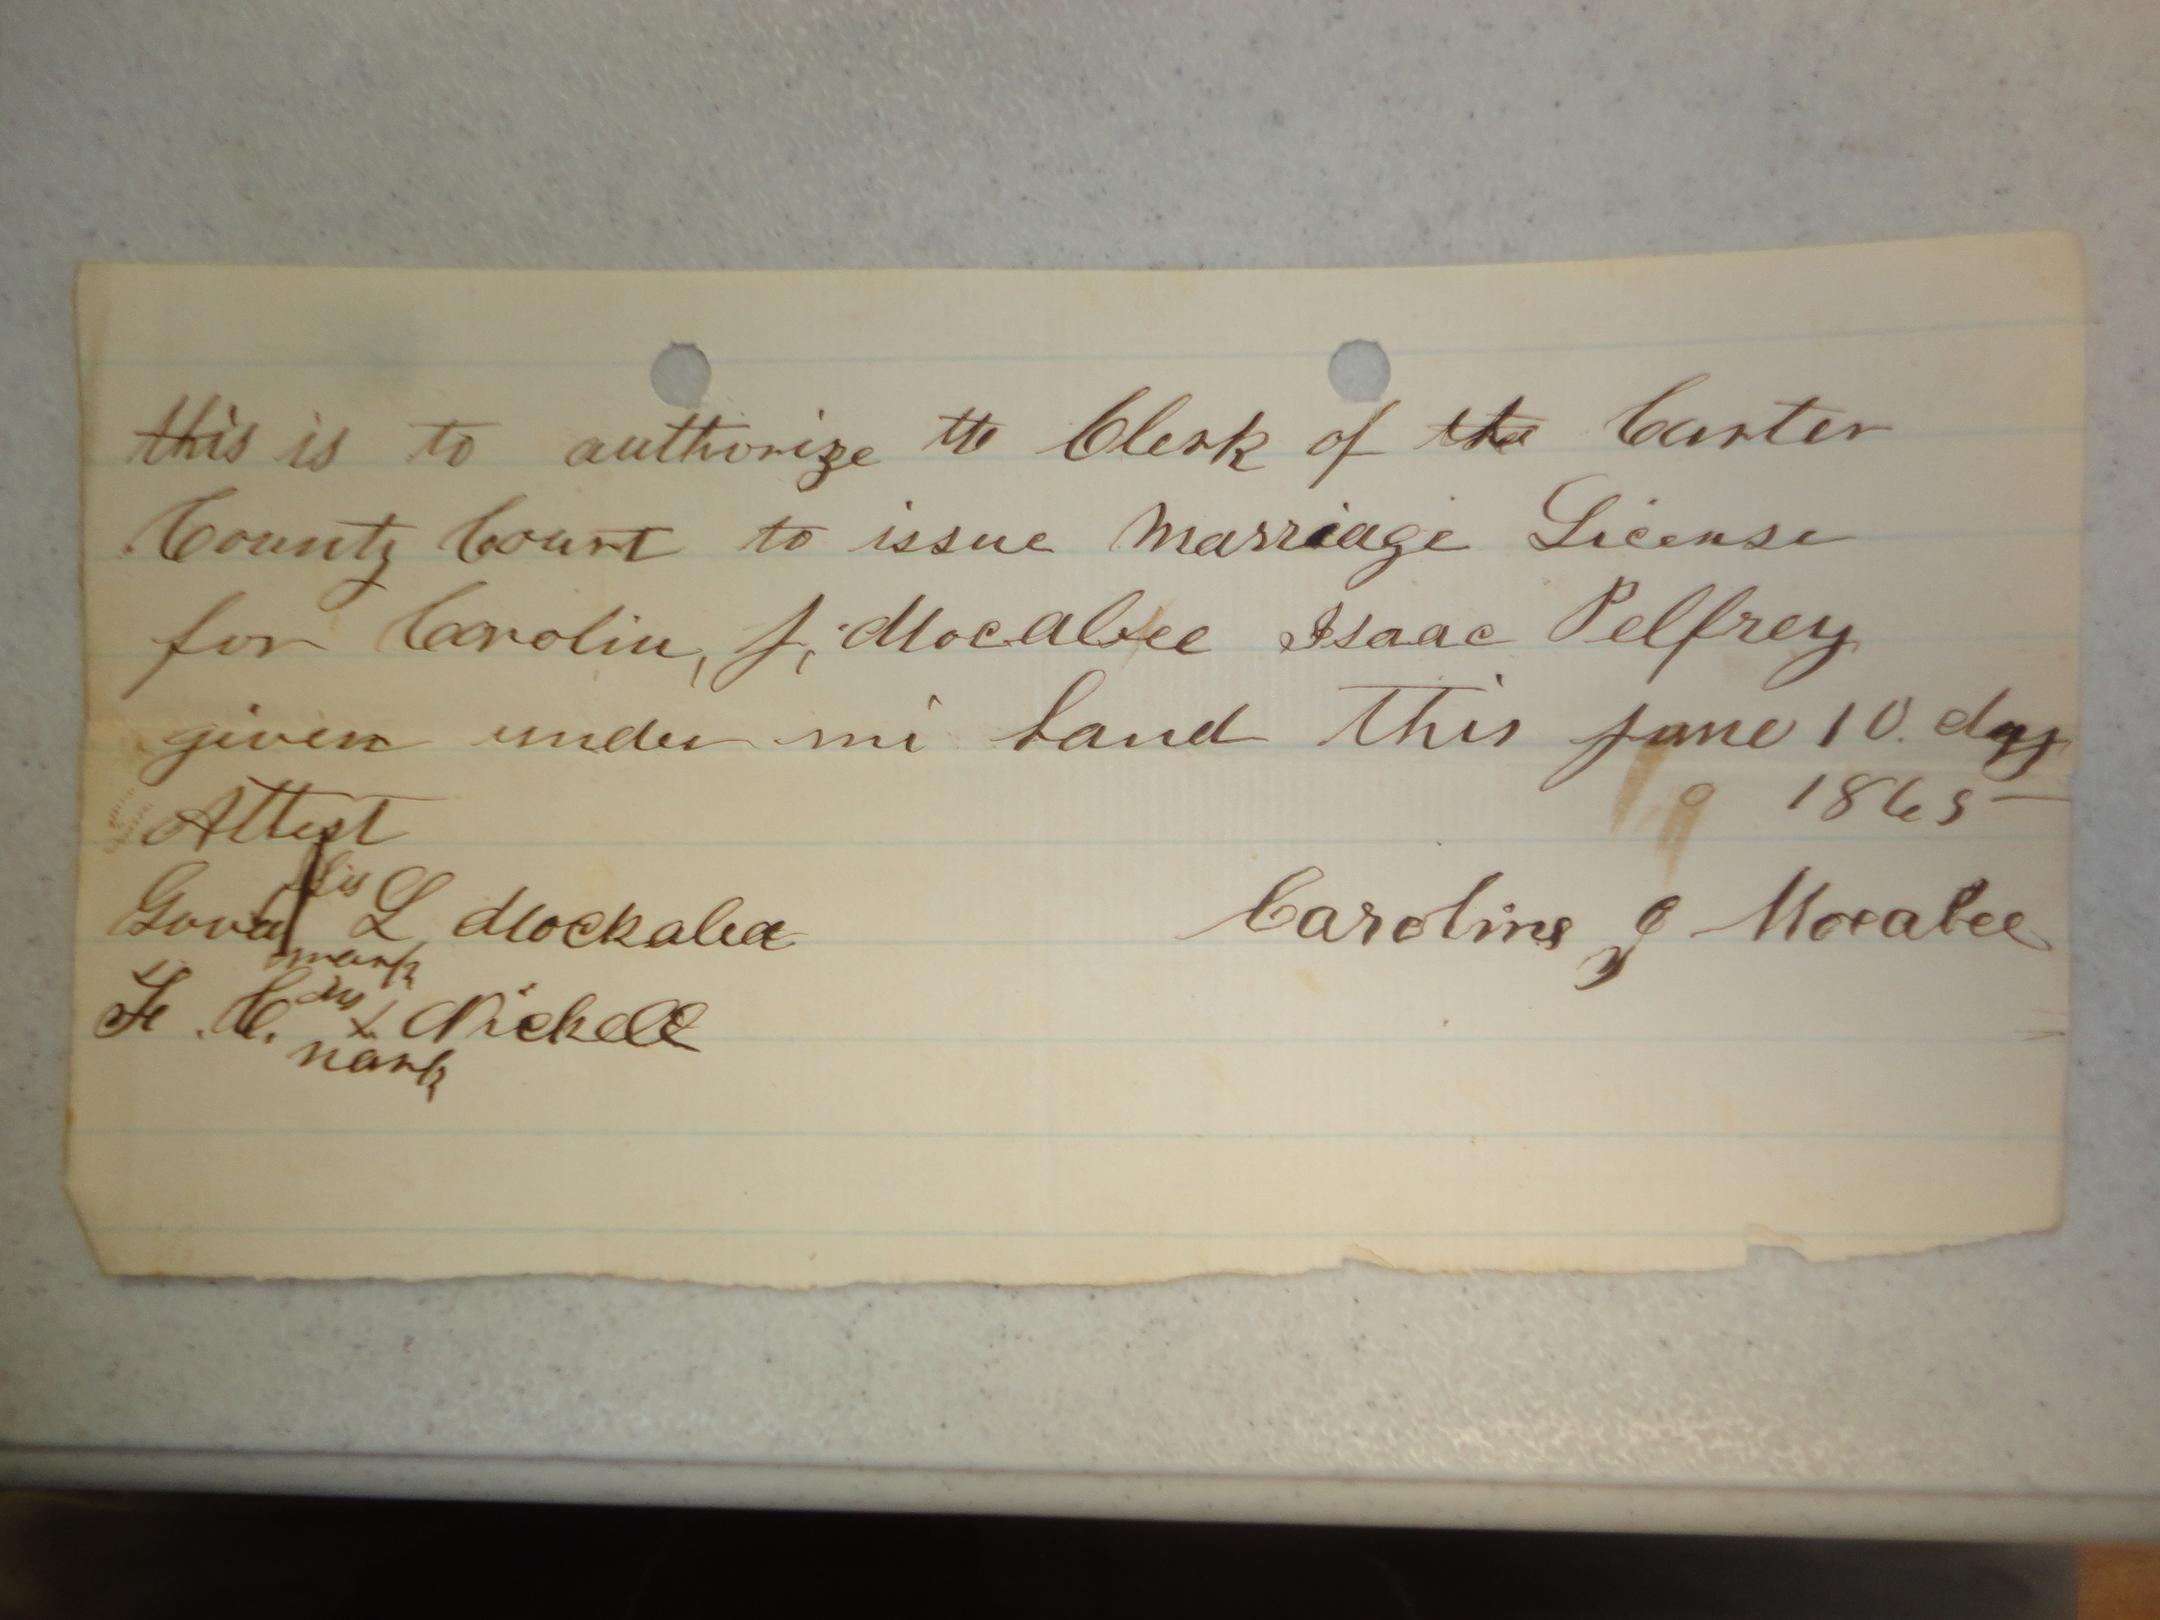 this is to authorize the Clerk of the Carter
County Court to issue Marriage License
for Carolin, J, Mocabee Isaac Pelfrey
given under mi hand this June 10. day
1865
Attest
his
L Mockabee Caroline J Mocabee
mark
his
F. C. X Nickell
mark